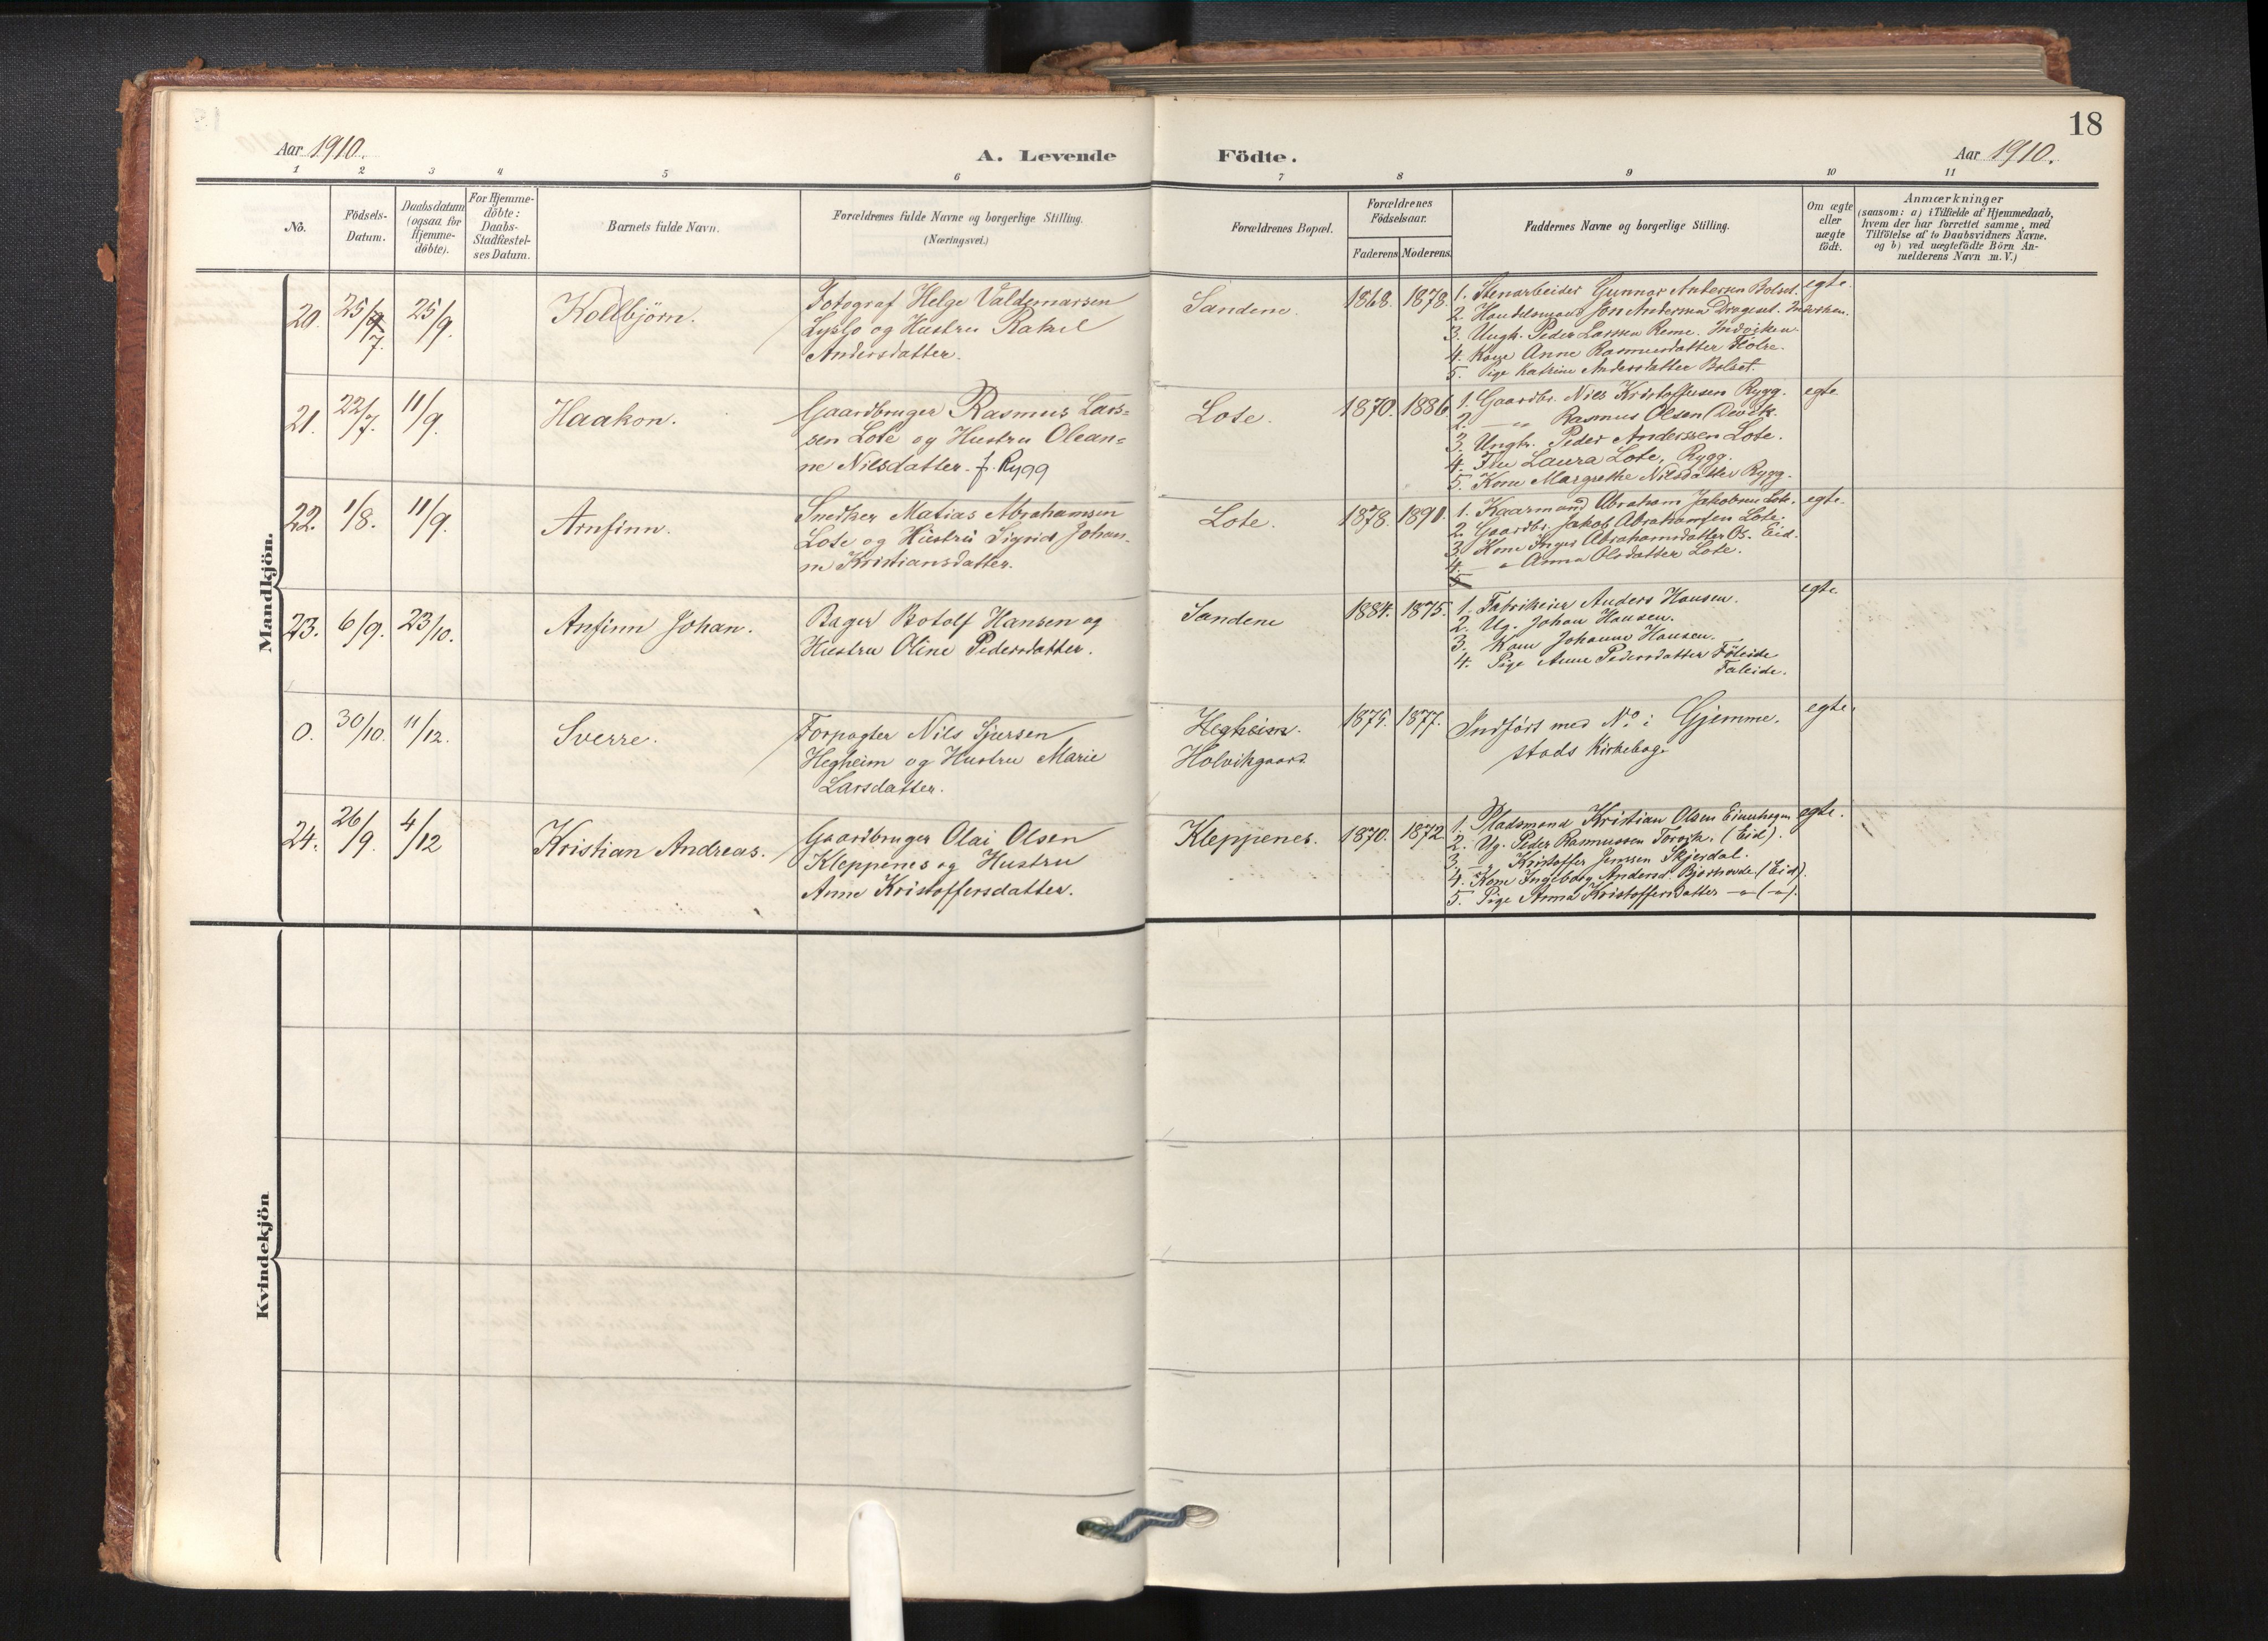 18
Aar 1910.
A. Levende Födte.
Aar 1910.
1 2 3 4 5 6 7 8 9 10 11
No.
Födsels-Datum.
Daabsdatum (ogsaa for Hjemme-döbte).
For Hjemme-döbte: Daabs-Stadfæstel-ses Datum.
Barnets fulde Navn.
Forældrenes fulde Navne og borgerlige Stilling.
(Næringsvei.)
Forældrenes Bopæl.
Forældrenes Födselsaar.
Faderens Moderens.
Faddernes Navne og borgerlige Stilling.
Om ægte eller uægte födt.
Anmærkninger
(saasom: a) i Tilfælde af Hjemmedaab,
hvem der har forrettet samme, med
Tilföielse af to Daabsvidners Navne.
og b) ved uægtefödte Börn An-
melderens Navn m. V.)
Mandkjön.
20. 25/7 25/9. Kollbjörn.
Fotograf Helge Valdemarsen
Lyslo og Hustru Rakel
Andersdatter.
Sandene. 1868. 1878.
1. Stenarbeider Gunnar Andersen Bolset.
2. Handelsmand Jon Andersen Drageset. Indviken.
3. Ungk. Peder Larssen Reme. Indviken.
4. Kone Anne Rasmusdatter
5. Pige Katrine Andersdatter Bolset.
egte.
21. 22/7. 11/9. Haakon.
Gaardbruger Rasmus Lars=
sen Lote og Hustru Olean=
ne Nilsdatter f. Rygg
Lote. 1870. 1886.
1. Gaardbr. Nils Kristoffersen Rygg.
2. — " Rasmus Olsen Devik.
3. Ungk. Peder Anderssen Lote.
4. Fru Laura Lote, Rygg.
5. Kone Margrethe Nilsdatter Rygg.
egte
22. 1/8. 11/9. Arnfinn.
Snedker Matias Abrahamsen
Lote og Hustru Sigrid Johan-
ne Kristiansdatter.
Lote. 1878. 1890.
1. Kaarmand Abraham Jakobsen Lote.
2. Gaardbr. Jakob Abrahamsen Lote.
3. Kone Inger Abrahamsdatter Os. Eid.
4. — " Anna Olsdatter Lote.
5
egte.
23. 6/9. 23/10. Anfinn Johan.
Bager Botolf Hansen og
Hustru Oline Pedersdatter.
Sandene 1884. 1875.
1. Fabrikeier Anders Hansen.
2. Ug. Johan Hansen.
3. Kone Johanne Hansen.
4. Pige Anne Pedersdatter Föleide
Faleide.
egte.
0. 30/10. 11/12. Sverre.
Forpagter Nils Sjursen
Hegheim og Hustru Marie
Larsdatter.
Hegheim.
Holvikgaard.
1875. 1877.
Indført med No. i Gjemme-
stads Kirkebog.
egte.
24. 26/9. 4/12 Kristian Andreas.
Gaardbruger Olai Olsen
Kleppenes og Hustru
Anne Kristoffersdatter.
Kleppenes. 1870. 1872
1. Pladsmand Kristian Olsen Einehagen
2. Ug. Peder Rasmussen Torvik. (Eid).
3. — " Kristoffer Jensen Skjerdal.
4. Kone Ingeborg Andersd. Bjorhovde (Eid).
5. Pige Anna Kristoffersdatter — " — ( " ).
egte.
Kvindekjön